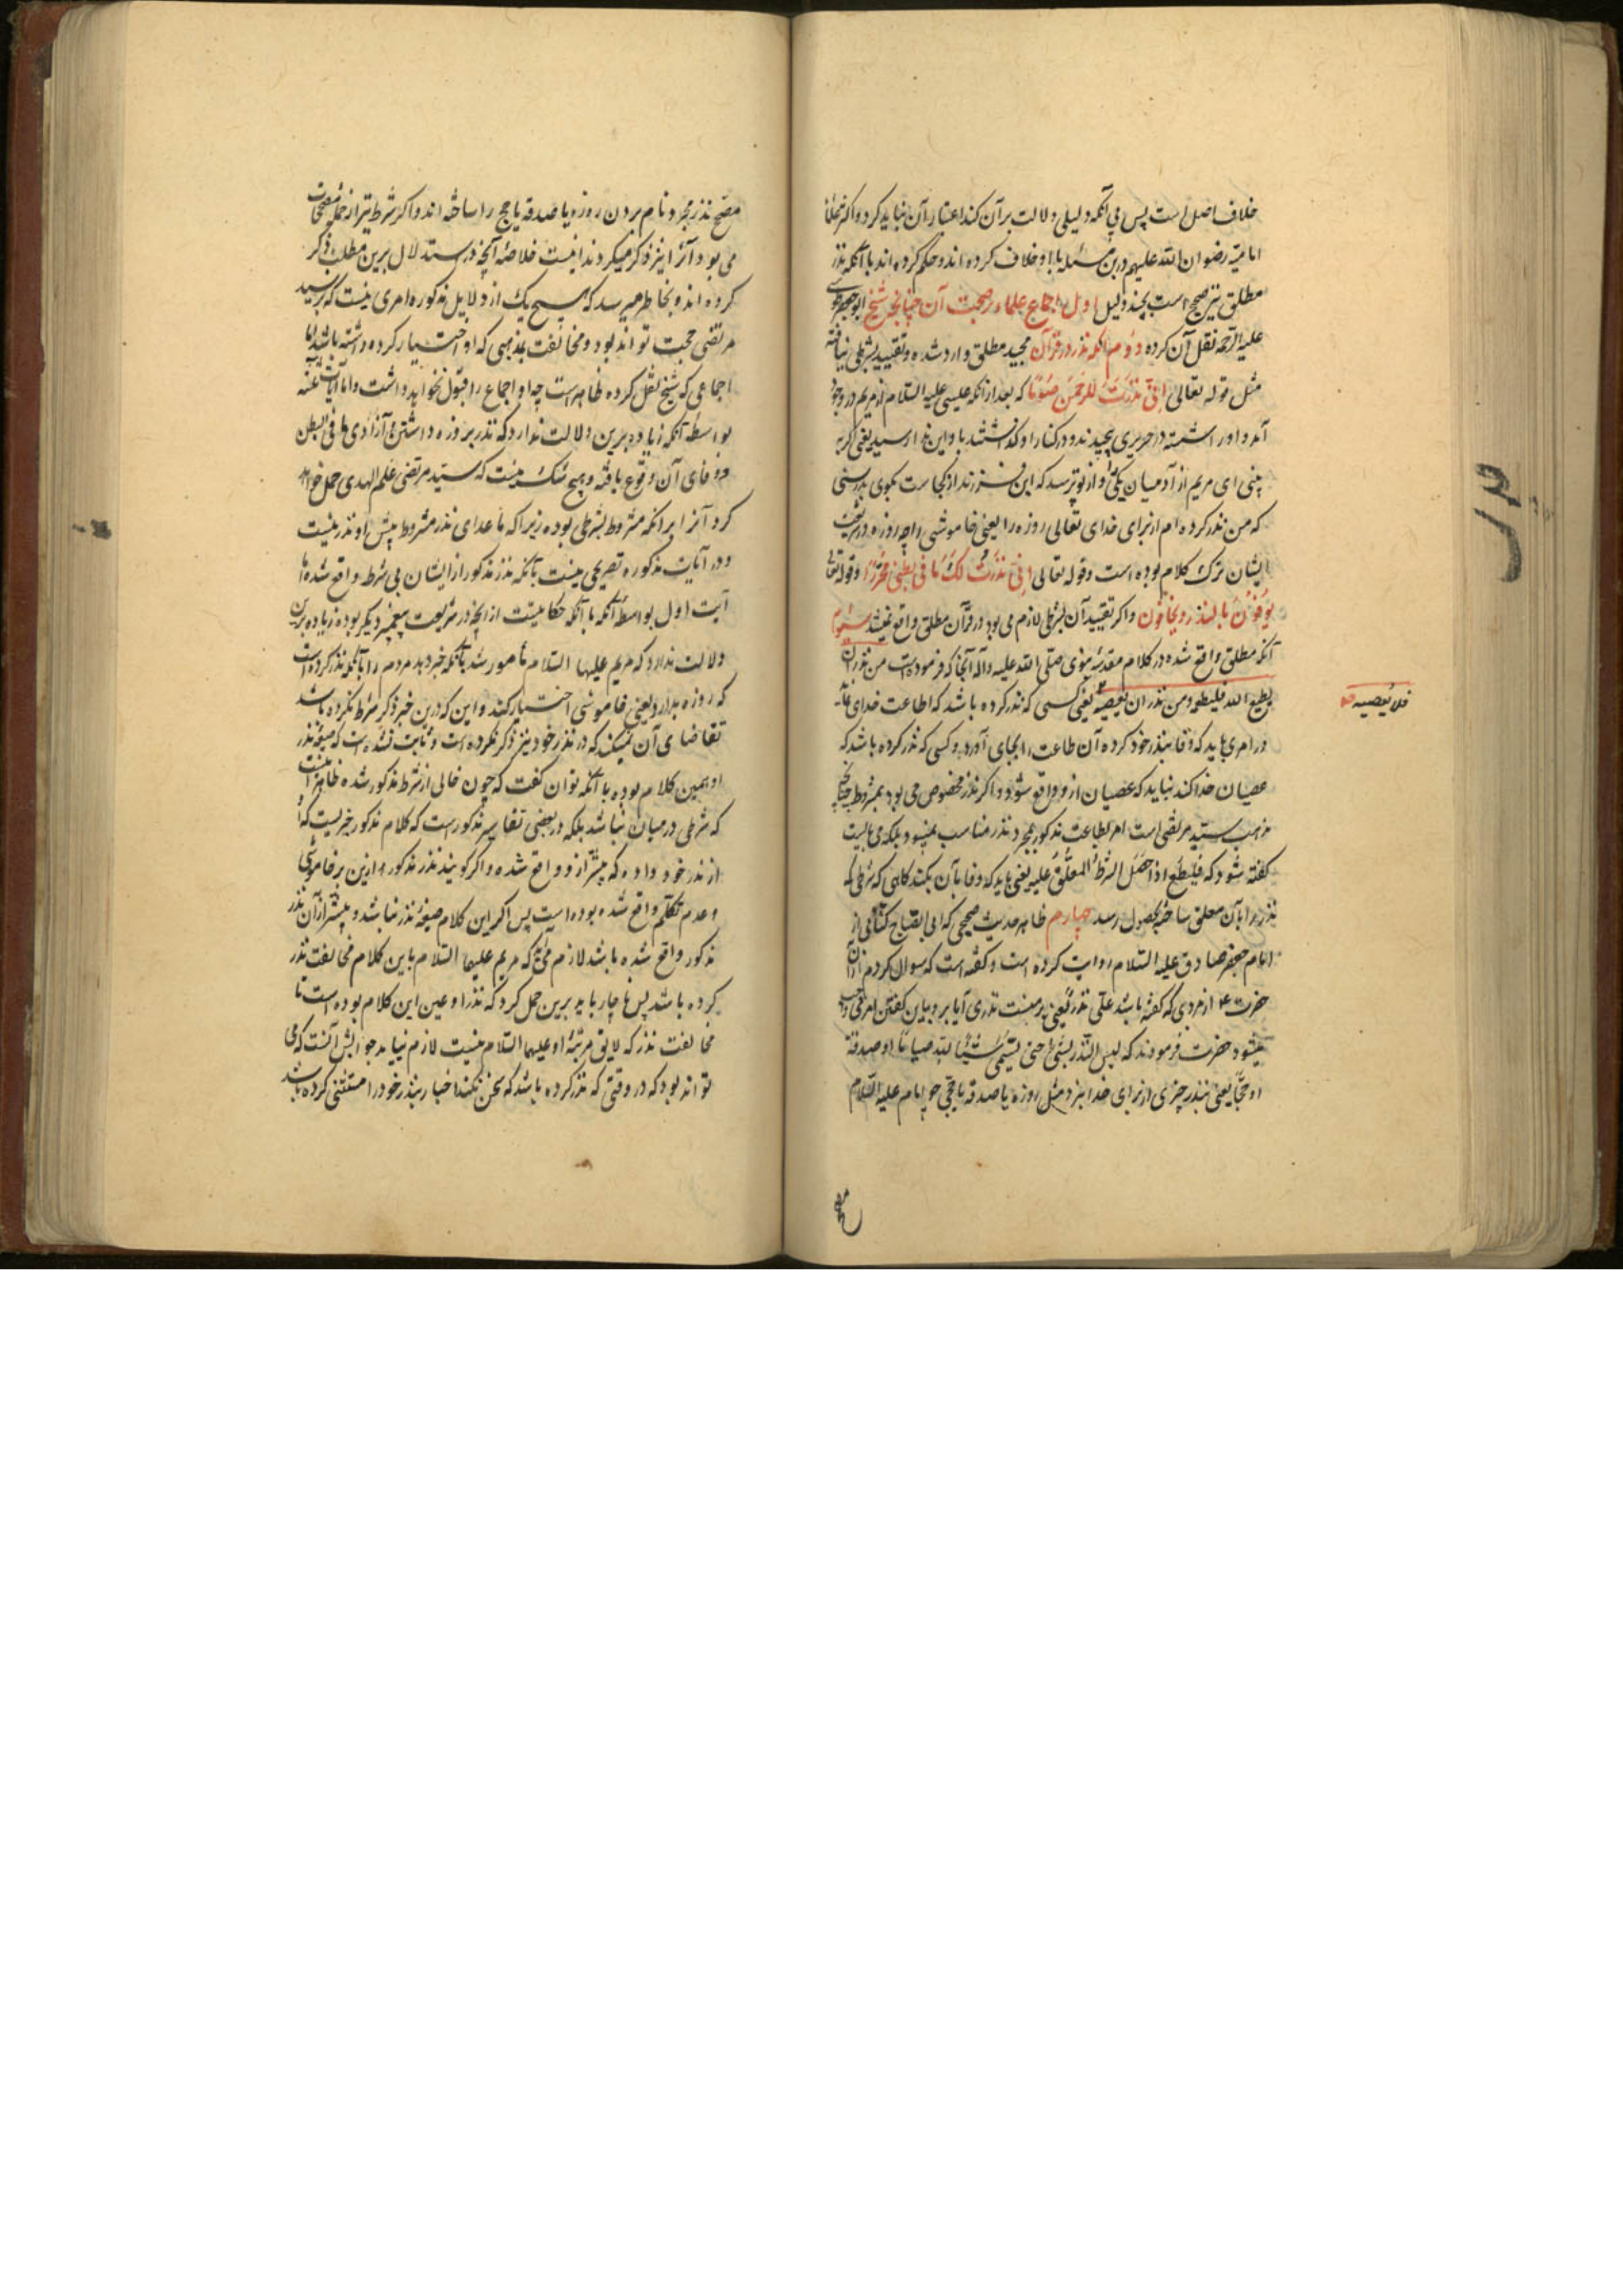 خلاف اصل است پس بی آنکه دلیلی دلالت بر آن کند اعتبار آن نباید کرد و اکثر علمای
امامیة رضوان الله علیهم درین مسئله با او خلاف کرده اند و حکم کرده اند با آنکه نذر
مطلق نیز صحیح است بچند دلیل اول اجماع علماء بر صحت آن چنانچه شیخ ابو جعفر طوسی
علیه الرحمه نقل آن کرده دوم آنکه نذر در قرآن مجید مطلق وارد شده و تقیید بشرطی نیافته
مثل قوله تعالی اِنّی نَذَرتُ لِلرَّحمنِ صَومًا که بعد از آنکه عیسی علیه السلام از مریم در وجود
آمد و او را شسته در حریری پیچیدند و در کنار او گذاشتند باو این ندا رسید یعنی اگر به
بینی ای مریم از آدمیان یکی را و از تو پرسد که این فرزند از کجاست بگوی بدرستی
که من نذر کرده ام از برای خدای تعالی روزه را یعنی خاموشی را چه روزه در شریعت
ایشان ترک کلام بوده است و قوله تعالی اِنّی نَذَرتُ لَکَ مَا فی بَطنی مُحَرَّرًا و قوله تعالی
یُوفُونَ بِالنَّذرِ وَیَخَافُونَ و اکر تقیید آن بشرطی لازم می بود در قرآن مطلق واقع نمیشد سیوم
آنکه مطلق واقع شده در کلام مقدس نبوی صلی الله علیه وآله آنجا که فرموده است من نذر ان
یطیع الله فلیطعه و من نذر ان یعصیه یعنی کسی که نذر کرده باشد که اطاعت خدای نماید
فلا یعصیه صح
در امری باید که وفا بنذر خود کرده آن طاعت را بجای آورد و کسی که نذر کرده باشد که
عصیان خدا کند نباید که عصیان ازو واقع شود و اکر نذر مخصوص می بود بمشروط چنانچه
مذهب سید مرتضی است امر بطاعت مذکور بمجرد نذر مناسب نمینمود بلکه می بایست
گفته شود که فلیطع اذا حصل الشرط المعلق علیه یعنی باید که وفا بآن بکند کاهی که شرطی که
نذر را بآن معلق ساخته بحصول رسد چهارم ظاهر حدیث صحیحی که ابی الصباح کنانی از
امام جعفر صادق علیه السلام روایت کرده است و گفته است که سوال کردم از آن
حضرت ۴ از مردی که گفته باشد علی نذر یعنی بر منست نذری آیا برو بباین گفتن امری واجب
میشود حضرت فرمودند که لیس النذر بشئ حتی یسمی شیئا لله صیاما او صدقة
او حجًا یعنی نذر چیزی از برای خدا نبرد مثل روزه یا صدقه یا حجی چو امام علیه السلام
مصحح
مصحح نذر مجرد نام بردن روزه یا صدقه یا حج را ساخته اند و اکر شرط نیز از جمله مصححات
می بود آنرا نیز ذکر میکردند اینست خلاصه آنچه در استدلال برین مطلب ذکر
کرده اند و بخاطر میرسد که هیچ یک از دلایل مذکوره امری نیست که بر سید
مرتضی حجت تواند بود و مخالفت بمذهبی که او اختیار کرده داشته باشد اما
اجماعی که شیخ نقل کرده ظاهر است چه او اجماع را قبول نخواهد داشت و اما آیات
بواسطه آنکه زیاده برین دلالت ندارد که نذر بر روزه داشتن و آزادی ما فی البطن
و وفای آن وقوع یافته و هیچ شک نیست که سید مرتضی علم الهدی حمل خواهد
کرد آنرا بر آنکه مشروط بشرطی بوده زیرا که ما عدای نذر مشروط پیش او نذر نیست
و در آیات مذکوره تصریحی نیست بآنکه نذر مذکور از ایشان بی شرط واقع شده اما
آیت اول بواسطه آنکه با آنکه حکایتست از آنچه در شریعت پیغمبر دیگر بوده زیاده برین
دلالت ندارد که مریم علیها السلام مأمور شد بآنکه خبر دهد مردم را بآنکه نذر کرده است
که روزه بدارد یعنی خاموشی اختیار کند و این که درین خبر ذکر شرط نکرده باشد
تقاضای آن نمیکند که در نذر خود نیز ذکر نکرده است و ثابت نشده است که صیغه نذر
او همین کلام بوده با آنکه توان گفت که چون خالی از شرط مذکور شده ظاهر آنست
که شرطی درمیان نباشد بلکه در بعضی تفاسیر مذکور است که کلام مذکور خبریست که او
از نذر خود داده که پیشتر ازو واقع شده و اکر گویند نذر مذکور از این بر خاموشی
و عدم تکلم واقع شده بوده است پس اگر این کلام صیغه نذر نباشد و پیشتر از آن نذر
مذکور واقع شده باشد لازم می آید که مریم علیها السلام باین کلام مخالفت نذر
کرده باشد پس ناچار باید برین حمل کرد که نذر او عین این کلام بوده است تا
مخالفت نذر که لایق مرتبه او علیها السلام نیست لازم نیاید جوابش آنست که می
تواند بود که در وقتی که نذر کرده باشد که سخن نکند اخبار بنذر خود را مستثنی کرده باشد